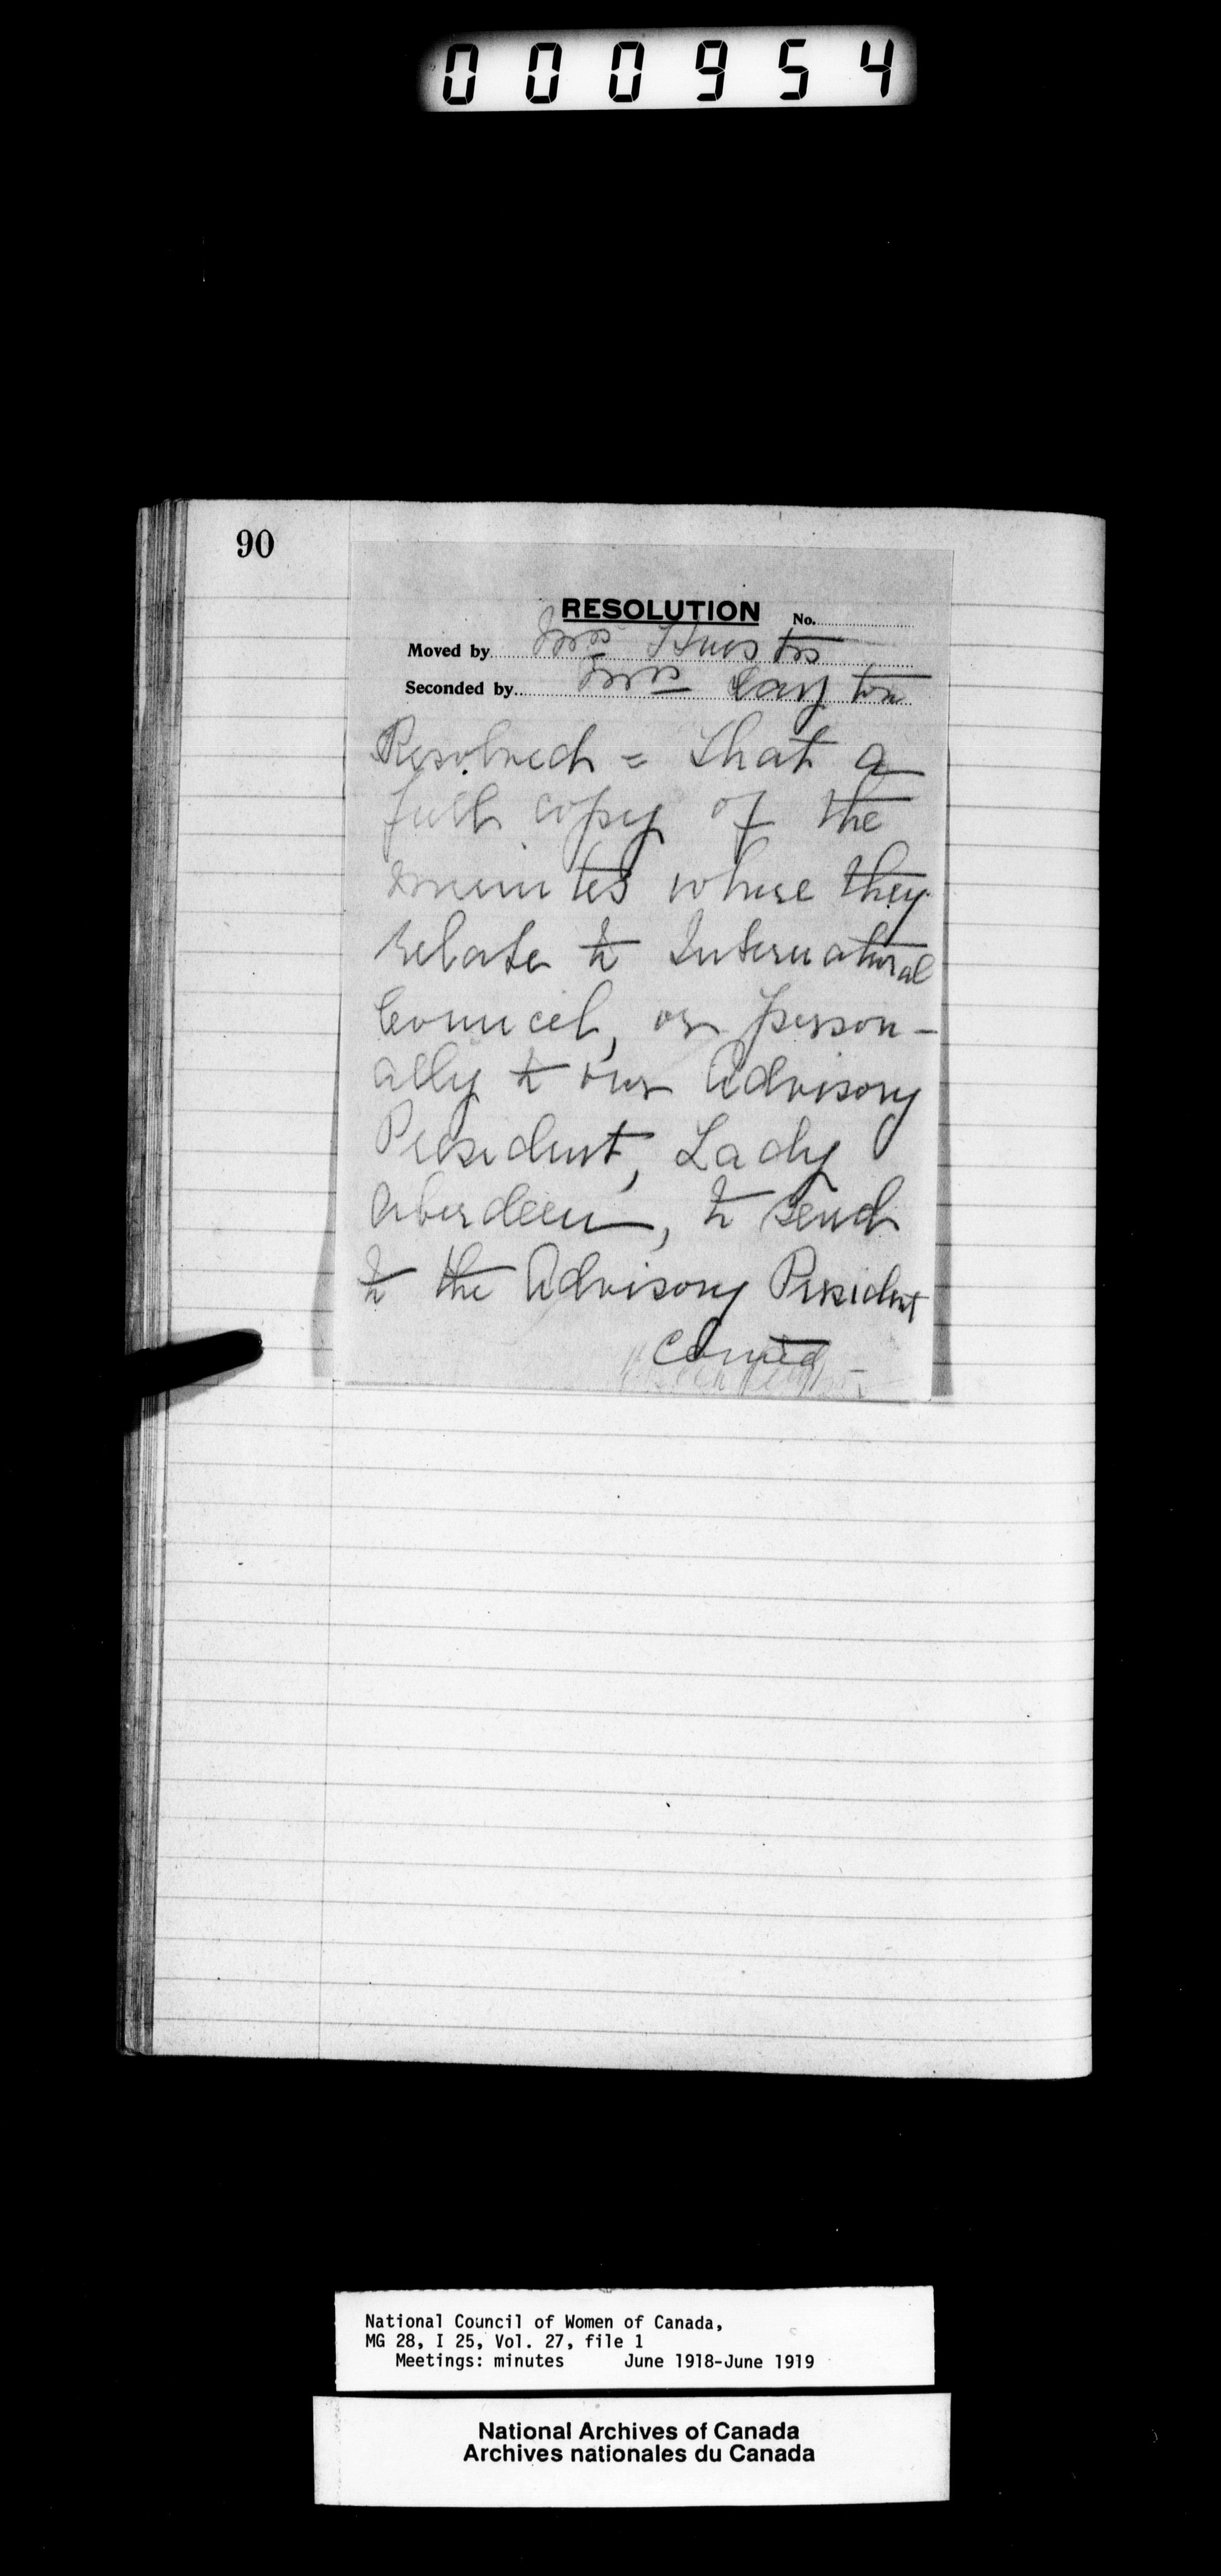 000954
90
RESOLUTION No.
Moved by Mrs
Seconded by Mrs
Resolved = that a
full copy of the
minutes where they
relate to International
Council, or person-
ally to our Advisory
President, Lady
Aberdeen, to send
to the Advisory President
Carried
National Council of Women of Canada,
MG 28, I 25, Vol. 27, file 1
Meetings: minutes June 1918-June 1919
National Archives of Canada
Archives nationales du Canada